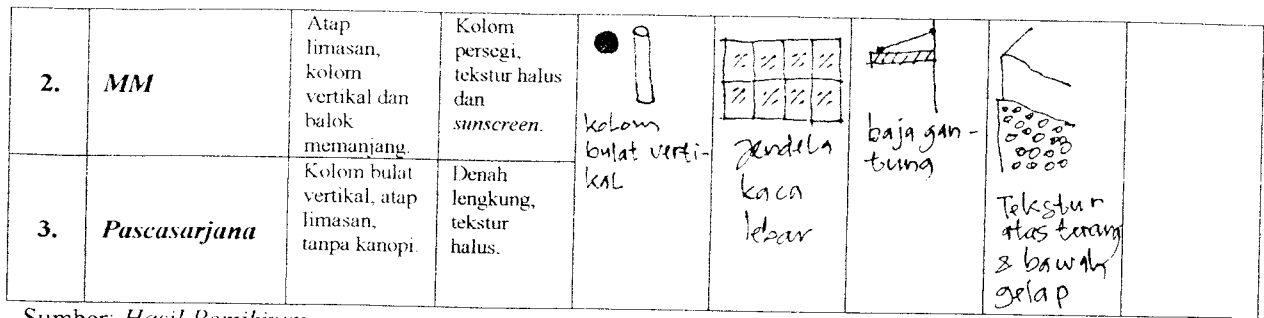 2.
MM
Atap
limasan,
kolom
vertikal dan
balok
memanjang.
Kolom
persegi,
tekstur halus
dan
sunscreen.
kolom
bulat verti-
kal
jendela
kaca
lebar
baja gan-
tung
Tekstur
atas terang
& bawah
gelap
3.
Pascasarjana
Kolom bulat
vertikal, atap
limasan,
tanpa kanopi.
Denah
lengkung,
tekstur
halus.
Sumber: Hasil Pemikiran